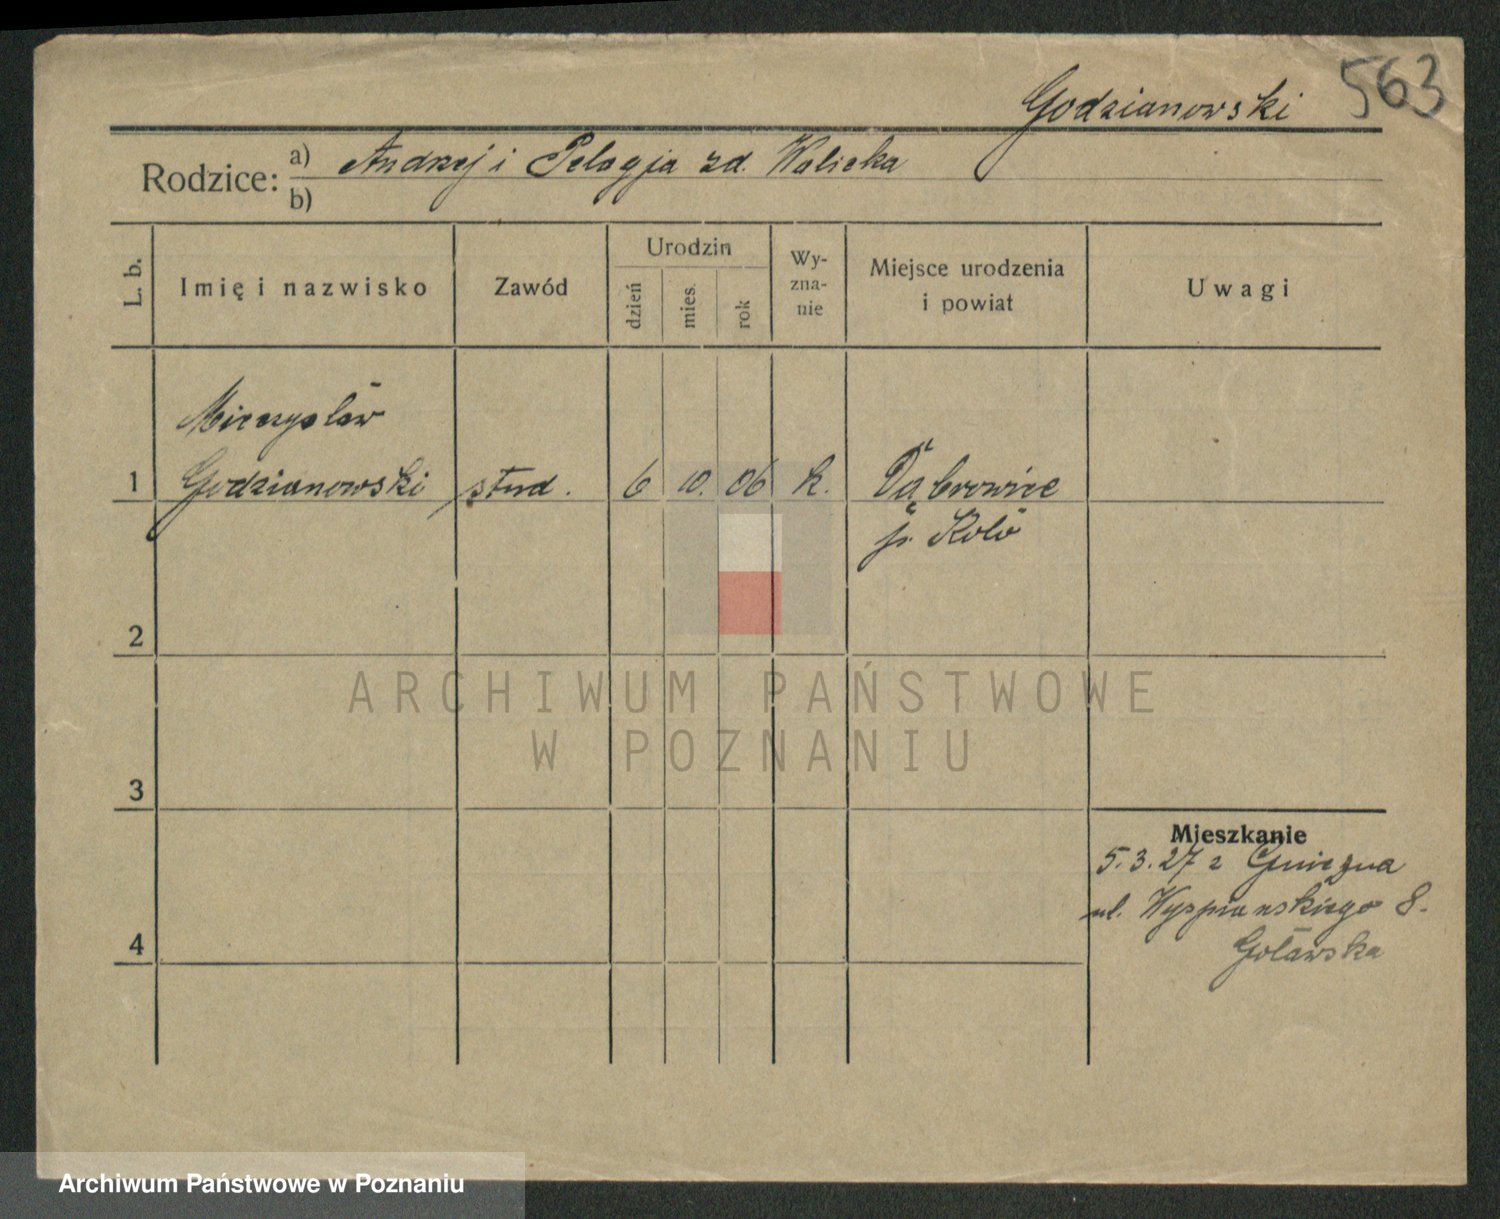 563
Godzianowski
Rodzice: a) Andrzej i Pelagja zd. Walicka
b)
L. b.
Imię i nazwisko
Zawód
Urodzin
dzień
mies.
rok
Wy-
zna-
nie
Miejsce urodzenia
i powiat
Uwagi
Mieczysław
1 Godzianowski stud. 6 10. 06 k. Dąbrowice
p. Koło
2
3
4
Mieszkanie
5.3.27 z Gniezna
ul. Wyspianskiego 8.
Goławska
ARCHIWUM PAŃSTWOWE
W POZNANIU
Archiwum Państwowe w Poznaniu